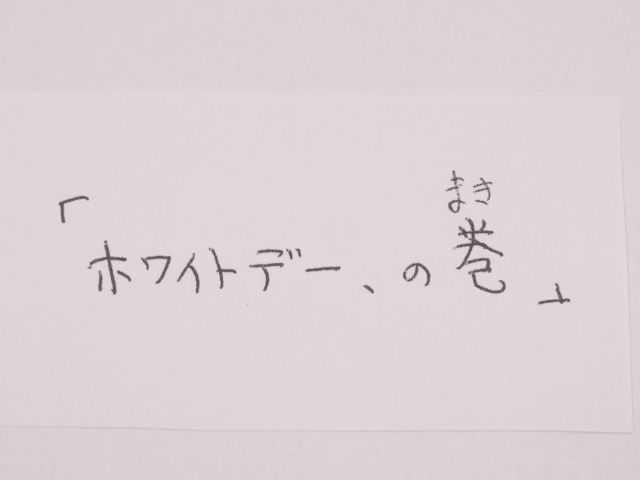 まき
「ホワイトデー、の巻」